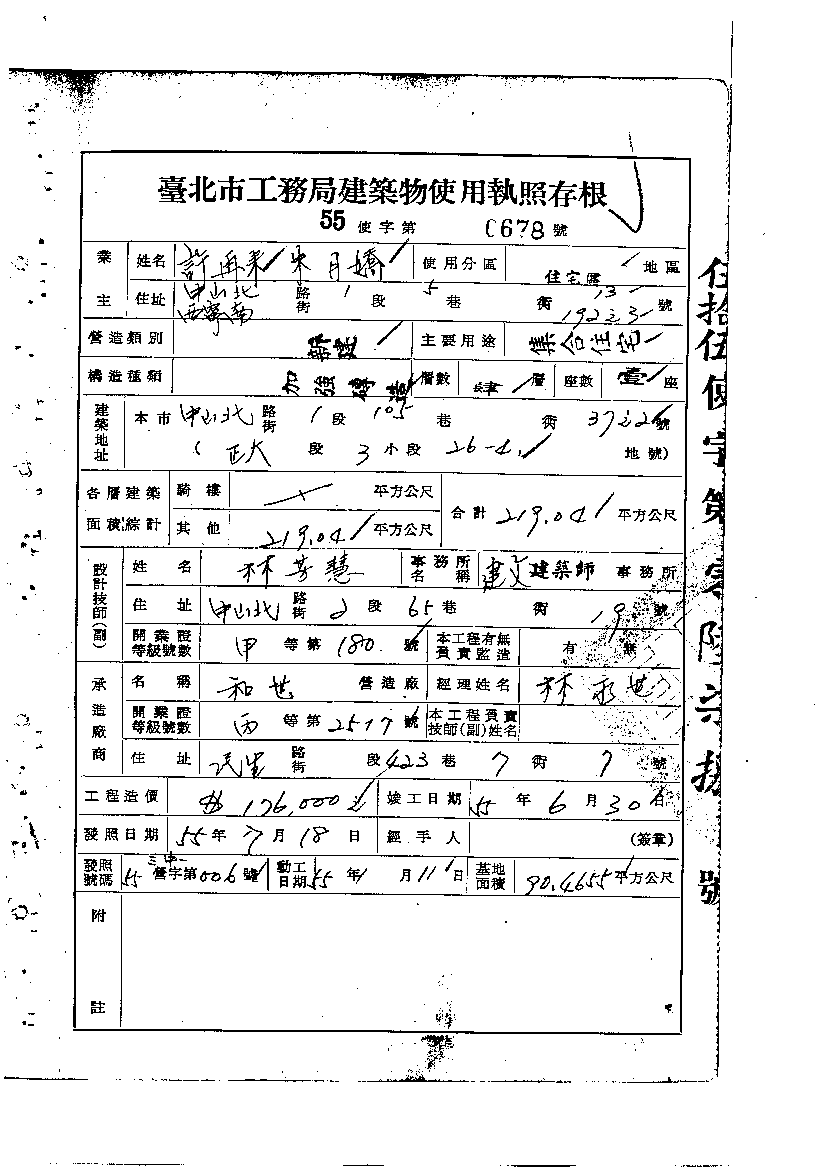 臺北市工務局建築物使用執照存根
55 使字第 0678 號
業主 姓名 許再來 朱月嬌 使用分區 住宅區 地區
住址 中山北 路街 1 段 5 巷 衖 13 號
西寧南 192之3
營造類別 新建 主要用途 集合住宅
構造種類 加強磚造 層數 肆 層 座數 壹 座
建築地址 本市 中山北 路街 1 段 105 巷 衖 37之2 號
( 正大 段 3 小段 26-4 地號)
各層建築面積綜計 騎樓 平方公尺 合計 219.04 平方公尺
其他 219.04 平方公尺
設計技師(副) 姓名 林芳慧 事務所名稱 建築師 事務所
住址 中山北 路街 2 段 65 巷 衖 19 號
開業證等級號數 甲 等第 180 號 本工程有無負責監造 有 無
承造廠商 名稱 和世 營造廠 經理姓名 林永世
開業證等級號數 丙 等第 2517 號 本工程負責技師(副)姓名
住址 民生 路街 段 423 巷 7 衖 7 號
工程造價 $ 176,000元 竣工日期 55 年 6 月 30 日
發照日期 55 年 7 月 18 日 經手人 (簽章)
發照號碼 55 營字第 006 號 動工日期 55 年 1 月 11 日 基地面積 90.4655 平方公尺
附註
伍拾伍使字第零陸柒捌號